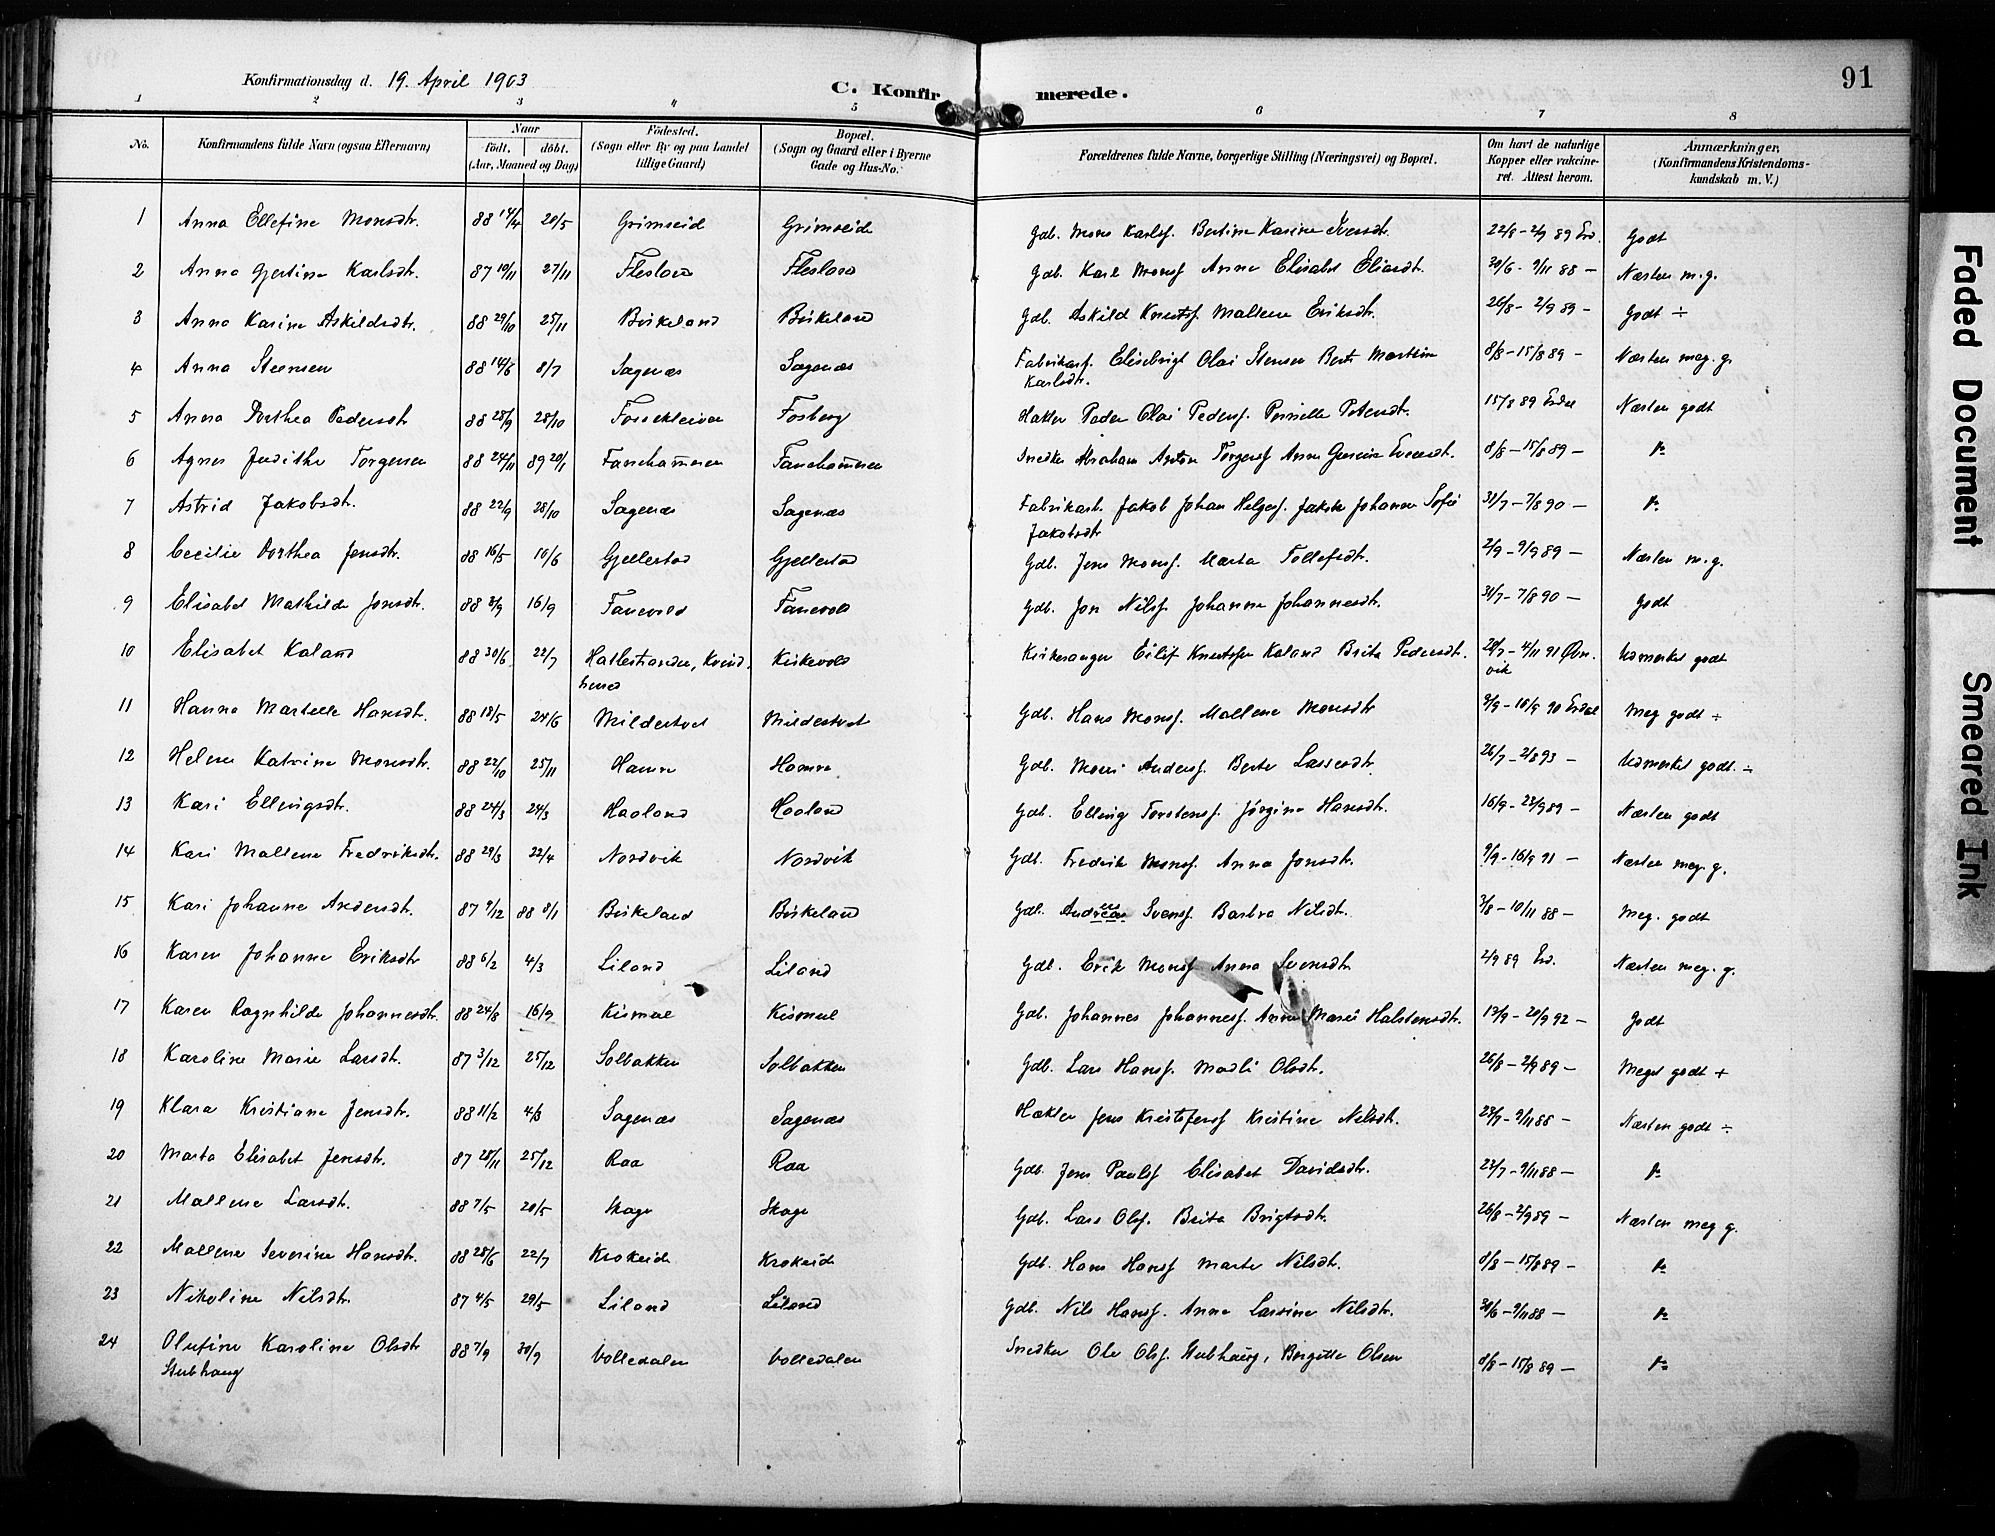 Konfirmationsdag d. 19. April 1903
C. Konfirmerede.
91
1 2 3 " 5 6 7 8
No.
Konfirmandens fulde Navn (ogsaa Efternavn)
Naar
födt. döbt.
(Aar, Maaned og Dag)
Födested.
(Sogn eller By og paa Landet
tillige Gaard)
Bopæl.
(Sogn og Gaard eller i Byerne
Gade og Hus-No.
Forældrenes fulde Navne, borgerlige Stilling (Næringsvei) og Bopæl.
Om havt de naturlige
Kopper eller vakcine-
ret. Attest herom.
Anmærkninger,
(Konfirmandens Kristendoms-
kundskab m. V.)
1 Anna Ellefine Monsdtr. 88 14/4 20/5 Grimseid Grimseid Gdb. Mons Karlsf. Bertine Karine Iversdtr. 22/8 - 2/9 89 Erd. Godt
2 Anna Gjertine Karlsdtr. 87 10/11 27/11 Flesland Flesland Gdb. Karl Monsf. Anna Elisabet Eliasdtr. 30/6 - 9/11 88 - Næsten m.g.
3 Anna Karine Askildsdtr. 88 29/10 25/11 Birkeland Birkeland Gdb. Askild Knutsf. Mallene Eriksdtr. 26/8 - 2/9 89 - Godt ÷
4 Anna Steensen 88 14/6 8/7 Sagenæs Sagenæs Fabrikarb. Olai Stensen Martine 8/8 - 15/8 89 - Næsten meg. g.
Karlsdtr.
5 Anna Dorthea Pedersdtr 88 28/9 28/10 Fossekleiven Fosberg Hækler Peder Olai Pedersf. Pernille Petersdtr. 15/8 89 Erdal Næsten godt
6 Agnes Judithe Torgersen 88 24/11 89 20/1 Fanehammeren Fanehammeren Snedker Abraham Anton Torgersf. Anne Iversdtr. 8/8 - 15/8 89 -
7 Astrid Jakobsdtr. 88 22/9 28/10 Sagenæs Sagenæs Fabrikarb. Jakob Johan Helgesf. Johanne Sofie 31/7 - 7/8 90 -
Jakobsdtr
8 Cecilie Dorthea Jensdtr. 88 16/5 10/6 Gjellestad Gjellestad Gdb. Jens Monsf. Marta Tollefsdtr. 2/9 - 9/9 89 - Næsten m.g.
9 Elisabet Mathilde Jonsdtr. 88 8/9 16/9 Fanevold Fanevold Gdb. Jon Nilsf. Johanne Johannesdtr. 31/7 - 7/8 90 - Godt
10 Elisabet Kaland 88 30/6 22/7 Hatlestranden, Kvind- Kirkevold Kirkesanger Eilif Knutsfen Kaland Brita Pedersdtr. 28/7 - 4/11 91 Øln. Udmerket godt
herred vik
11 Hanna Martelle Hansdtr. 88 18/5 24/6 Mildestvet Mildestvet Gdb. Hans Monsf. Mallene Monsdtr 9/9 - 16/9 90 Erdal Meg godt ÷
12 Helene Katrine Monsdtr. 88 22/10 25/11 Hamre Hamre Gdb. Mons Andersf. Berte Lassesdtr 26/7 - 2/8 93 - Udmerket godt. ÷
13 Kari Ellingsdtr. 88 24/3 24/3 Haaland Haaland Gdb. Elling Torstensf. Jörgine Hansdtr. 16/9 - 23/9 89 - Næsten godt
14 Kari Mallene Fredriksdtr. 88 29/3 22/4 Nordvik Nordvik Gdb. Fredrik Monsf. Anna Jonsdtr. 9/9 - 16/9 91 - Næsten meg. g.
15 Kari Johanne Andersdtr. 87 9/12 88 8/1 Birkeland Birkeland Gdb. Andreas Svensf. Barbra Nilsdtr. 3/8 - 10/11 88 - Meg. godt
16 Karen Johanne Eriksdtr 88 6/2 4/3 Liland Liland Gdb. Erik Monsf Anna Svensdtr 2/9 89 Erd. Næsten meg. g.
17 Karen Ragnhilde Johannesdtr. 88 24/8 16/9 Kismul Kismul Gdb. Johannes Johannesf. Anne Marie Halstensdtr. 13/9 - 20/9 92 - Godt
18 Karoline Marie Larsdtr. 87 3/12 25/12 Solbakken Solbakken Gdb. Lars Hansf. Madli Olsdtr. 26/8 - 2/9 89 - Meget godt +
19 Klara Kristiane Jensdtr. 88 11/2 4/3 Sagenæs Sagenæs Hækler Jens Kristofersf Kristine Nilsdtr. 23/7 - 9/11 88 - Næsten godt ÷
20 Marta Elisabet Jensdtr. 87 28/11 25/12 Raa Raa Gdb. Jens Paulsf Elisabet Davidsdtr. 23/7 - 9/11 88 -
21 Mallene Larsdtr. 88 7/5 20/5 Skage Skage Gdb. Lars Olsf. Brita Brigtsdtr. 26/8 - 2/9 89 - Næsten meg g.
22 Mallene Severine Hansdtr. 88 28/6 22/7 Krokeide Krokeide Gdb. Hans Hansf Marte Nilsdtr. 8/8 - 15/8 89 -
23 Nikoline Nilsdtr. 87 4/5 29/5 Liland Liland Gdb. Nils Hansf. Anna Larsine Nilsdtr. 30/6 - 9/11 88 -
24 Olufine Karoline Olsdtr 88 7/9 30/9 Volledalen Volledalen Snedker Ole Olsf. Stubhaug, Birgitte Olsen 8/8 - 15/8 89 -
Stubhaug
Faded Document
Smeared Ink